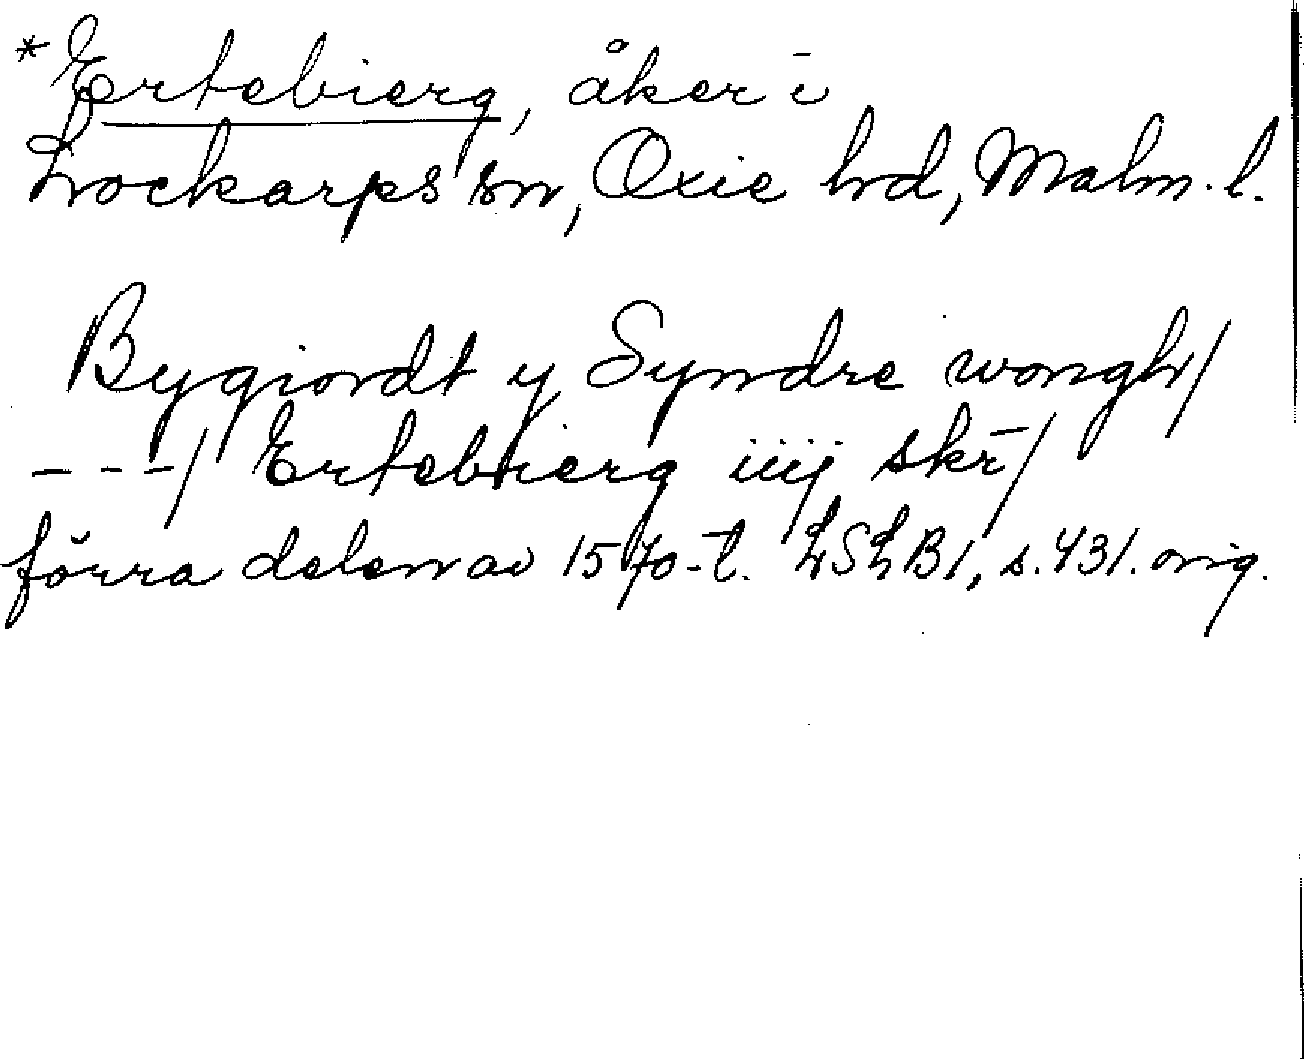 *Ertebierg, åker i
Lockarps sn, Oxie hd, Malm. l.
Bygiordt y Syndre wongh/
---/ Ertebierg iiij skr̄/
förra delen av 1570-t. LSLB1, s. 431. orig.